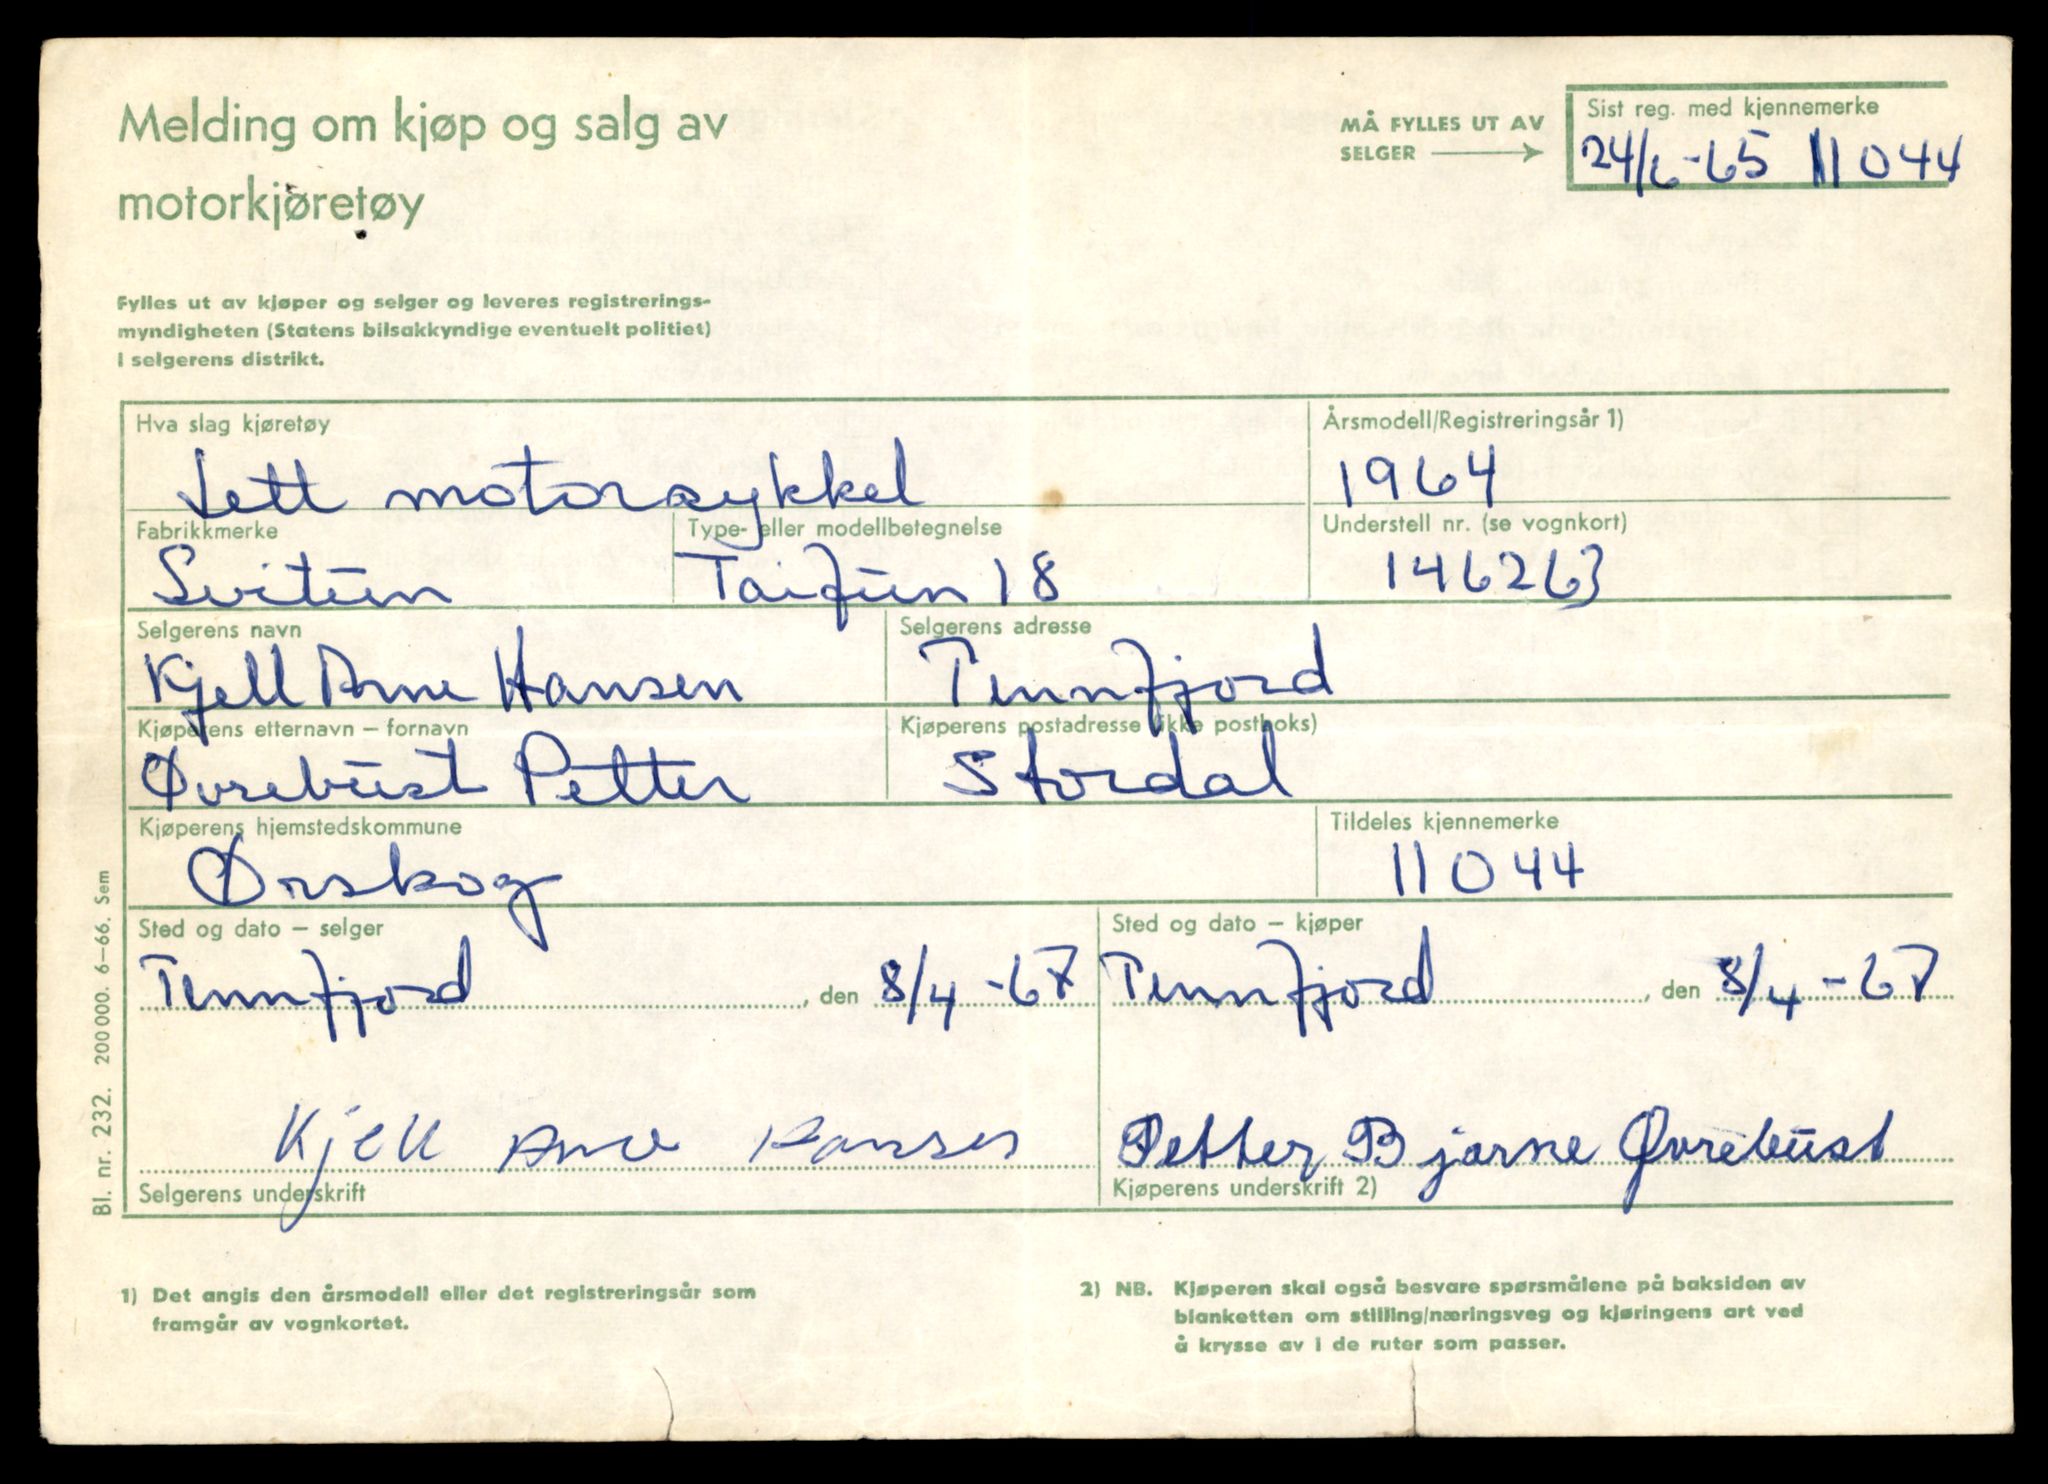 Melding om kjøp og salg av
motorkjøretøy
MÅ FYLLES UT AV
SELGER
Sist reg. med kjennemerke
24/6-65 11044
Fylles ut av kjøper og selger og leveres registrerings-
myndigheten (Statens bilsakkyndige eventuelt politiet)
i selgerens distrikt.
Hva slag kjøretøy
Lett motorsykkel
Årsmodell/Registreringsår 1)
1964
Fabrikkmerke
Svitun
Type- eller modellbetegnelse
Taifun 18
Understell nr. (se vognkort)
146263
Selgerens navn
Kjell Arne Hansen
Selgerens adresse
Tennfjord
Kjøperens etternavn – fornavn
Øvrebust Petter
Kjøperens postadresse (ikke postboks)
Stordal
Kjøperens hjemstedskommune
Ørskog
Tildeles kjennemerke
11044
Sted og dato – selger
Tennfjord, den 8/4-67
Sted og dato – kjøper
Tennfjord, den 8/4-67
Kjell Arne Hansen
Selgerens underskrift
Petter Bjarne Øvrebust
Kjøperens underskrift 2)
Bl. nr. 232. 200 000. 6–66. Sem
1) Det angis den årsmodell eller det registreringsår som
framgår av vognkortet.
2) NB. Kjøperen skal også besvare spørsmålene på baksiden av
blanketten om stilling/næringsveg og kjøringens art ved
å krysse av i de ruter som passer.